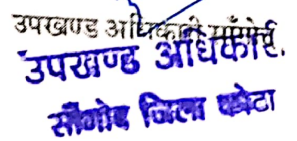 उपखण्ड अधिकारी सांगोद
उपखण्ड अधिकारी,
साँगोद जिला कोटा